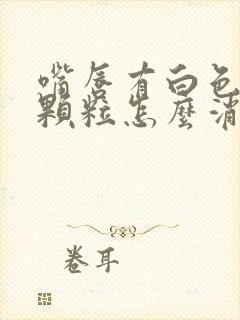 嘴唇有白色
顆粒怎麼消
卷耳